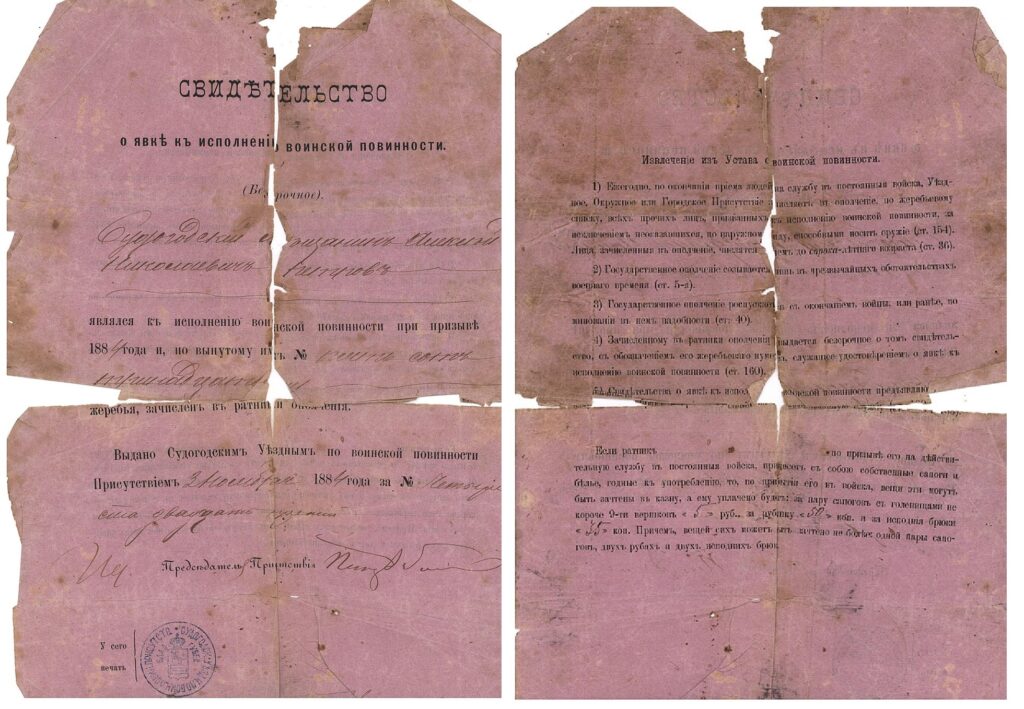 СВИДѢТЕЛЬСТВО
о явкѣ къ исполненію воинской повинности.
(Безсрочное).
Судогодскій мѣщанинъ Алексѣй
Николаевичъ Петровъ
являлся къ исполненію воинской повинности при призывѣ
1884 года и, по вынутому имъ №
тринадцатый
жеребья, зачисленъ въ ратники ополченія.
Выдано Судогодскимъ Уѣзднымъ по воинской повинности
Присутствіемъ 2 Ноября 1884 года за № Четыре
ста двадцать третій
Предсѣдатель Присутствія
У сего
печать
Извлеченіе изъ Устава о воинской повинности.
1) Ежегодно, по окончаніи пріема людей на службу въ постоянныя войска, Уѣзд-
ное, Окружное или Городское Присутствіе зачисляетъ въ ополченіе, по жеребьевому
списку, всѣхъ прочихъ лицъ, призванныхъ къ исполненію воинской повинности, за
исключеніемъ неоказавшихся, по наружному виду, способными носить оружіе (ст. 154).
Лица, зачисленныя въ ополченіе, числятся въ немъ до сорока-лѣтняго возраста (ст. 36).
2) Государственное ополченіе созывается лишь въ чрезвычайныхъ обстоятельствахъ
военнаго времени (ст. 5-я).
3) Государственное ополченіе распускается съ окончаніемъ войны, или ранѣе, по
минованіи въ немъ надобности (ст. 40).
4) Зачисленному въ ратники ополченія выдается безсрочное о томъ свидѣтель-
ство, съ обозначеніемъ его жеребьеваго нумера, служащее удостовѣреніемъ о явкѣ къ
исполненію воинской повинности (ст. 160).
5) Свидѣтельства о явкѣ къ исполненію воинской повинности предъявляю
Если ратникъ по призывѣ его на дѣйстви-
тельную службу въ постоянныя войска, принесетъ съ собою собственные сапоги и
бѣлье, годные къ употребленію, то, по прибытіи его въ войска, вещи эти могутъ
быть зачтены въ казну, а ему уплачено будетъ: за пару сапоговъ съ голенищами не
короче 9-ти вершковъ « 5 » руб., за рубашку « 50 » коп. и за исподнія брюки
« 35 » коп. Причемъ, вещей сихъ можетъ быть зачтено не болѣе: одной пары сапо-
говъ, двухъ рубахъ и двухъ исподнихъ брюкъ.